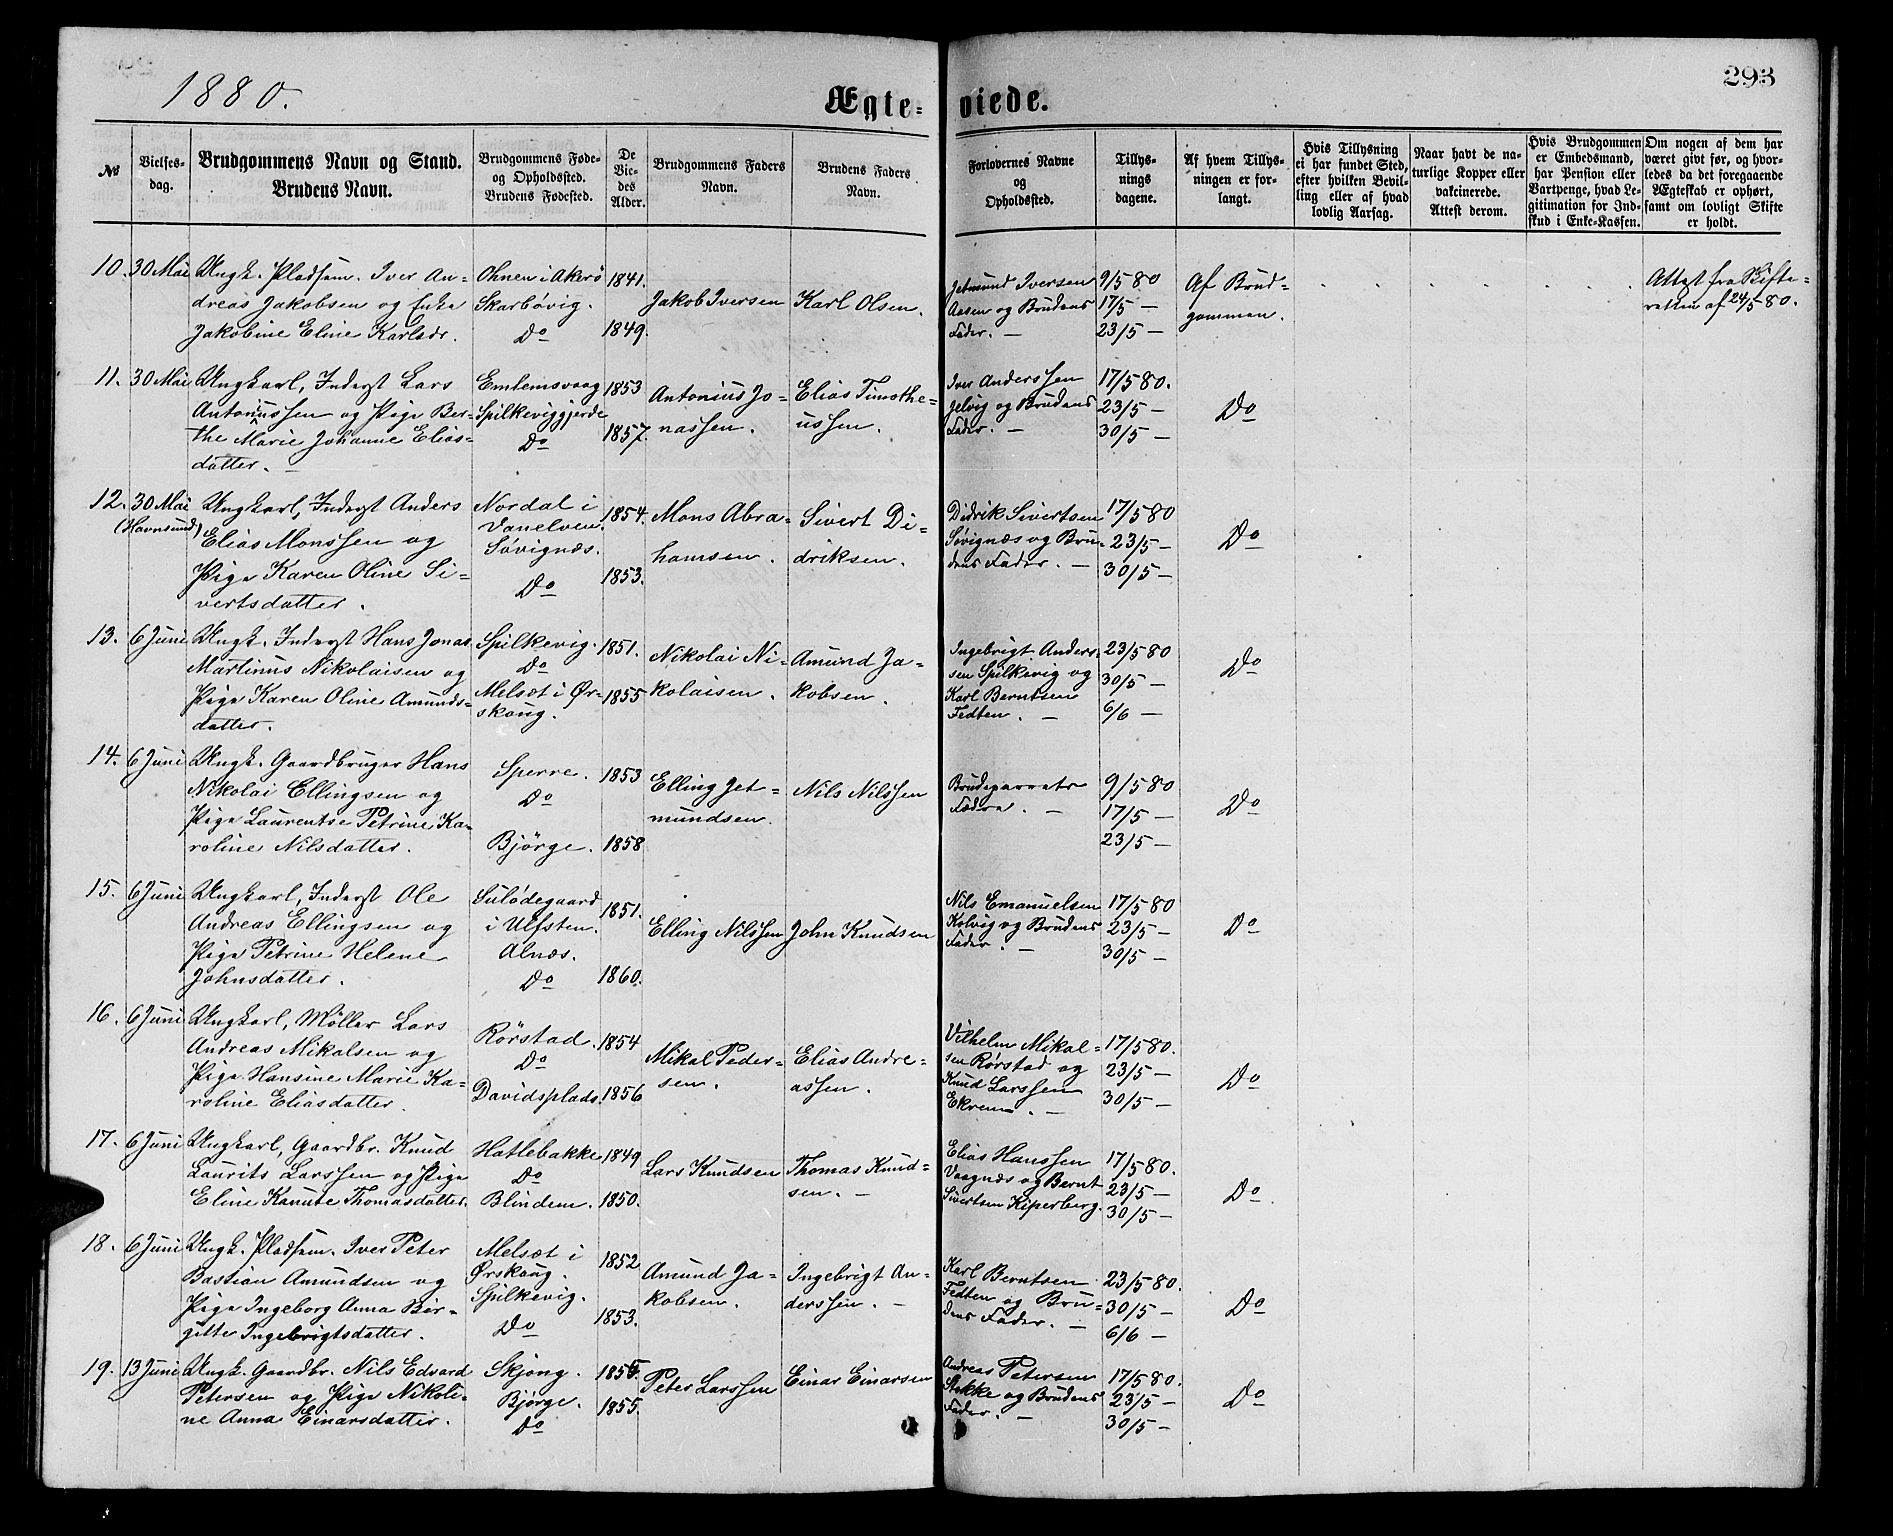 1880.
293
Ægte-viede.
No
Vielses-
dag.
Brudgommens Navn og Stand.
Brudens Navn.
Brudgommens Føde-
og Opholdssted.
Brudens Fødested.
De
Vie-
des
Alder.
Brudgommens Faders
Navn.
Brudens Faders
Navn.
Forlovernes Navne
og
Opholdssted.
Tillys-
nings
dagene.
Af hvem Tillys-
ningen er for-
langt.
Hvis Tillysning
ei har fundet Sted,
efter hvilken Bevil-
ling eller af hvad
lovlig Aarsag.
Naar havt de na-
turlige Kopper eller
vakcinerede.
Attest derom.
Hvis Brudgommen
er Embedsmand,
har Pension eller
Vartpenge, hvad Le-
gitimation for Ind-
skud i Enke-Kassen.
Om nogen af dem har
været givt før, og hvor-
ledes da det foregaaende
Ægteskab er ophørt,
samt om lovligt Skifte
er holdt.
10. 30 Mai
Ungk. Pladsm. Iver An-
dreas Jakobsen og Enke
Jakobine Eline Karlsdr.
Ohnen i Akerö
Skarbövig.
Do
1841.
1849.
Jakob Iversen
Karl Olsen.
Jetmund Iversen
Aasen og Brudens
Fader. —
9/5 80
17/5 —
23/5 —
Af Brud-
gommen.
Attest fra Skifte-
retten af 24/5 80.
11. 30 Mai
Ungkarl, Inderst Lars
Antoniussen og Pige Ber-
the Marie Johanne Elias-
datter. —
Emlemsvaag
Spilkeviggjerde
Do
1853
1857.
Antonius Jo-
nassen.
Elias Timothe-
ussen.
Iver Anderssen
Jelvig og Brudens
Fader. —
17/5 80.
23/5 —
30/5 —
Do
12. 30 Mai
(Havnsund)
Ungkarl, Inderst Anders
Elias Monssen og
Pige Karen Oline Si-
vertsdatter.
Nordal i
Vanelven.
Søvignæs.
Do
1854.
1853.
Mons Abra-
hamsen.
Sivert Di-
driksen.
Didrik Sivertsen
Søvignæs og Bru-
dens Fader. —
17/5 80
23/5 —
30/5 —
Do
13. 6 Juni
Ungk. Inderst Hans Jonas
Martinus Nikolaisen og
Pige Karen Oline Amunds-
datter.
Spilkevig.
Do
Melsæt i Ør-
skoug.
1851.
1855
Nikolai Ni-
kolaisen.
Amund Ja-
kobsen.
Ingebrigt Anders-
sen Spilkevig og
Karl Berntsen
Fedten. —
23/5 80
30/5 —
6/6 —
Do
14. 6 Juni
Ungk. Gaardbruger Hans
Nikolai Ellingsen og
Pige Laurentse Petrine Ka-
roline Nilsdatter.
Sperre.
Do
Bjørge.
1853
1858
Elling Jet-
mundsen.
Nils Nilssen
Brudeparrets
Fædre. —
9/5 80
17/5 —
23/5 —
Do
15. 6 Juni
Ungkarl, Inderst Ole
Andreas Ellingsen og
Pige Petrine Helene
Johnsdatter.
Sulødegaard
i Ulfsten.
Alnæs.
Do
1851.
1860.
Elling Nilssen
John Knudsen
Nils Emanuelsen
Kolvig og Brudens
Fader. —
17/5 80
23/5 —
30/5 —
Do
16. 6 Juni
Ungkarl, Møller Lars
Andreas Mikalsen og
Pige Hansine Marie Ka-
roline Eliasdatter.
Rørstad.
Do
Davidsplads.
1854
1856
Mikal Peder-
sen.
Elias Andre-
assen.
Vilhelm Mikal-
sen Rørstad og
Knud Larssen
Ekrem. —
17/5 80.
23/5 —
30/5 —
Do
17. 6 Juni
Ungkarl, Gaardbr. Knud
Laurits Larssen og Pige
Eline Kanute Thomasdatter.
Hatlebakke
Do
Blindem.
1849
1850.
Lars Knudsen
Thomas Knud-
sen. —
Elias Hanssen
Vaagnæs og Bernt
Sivertsen Kiperberg.
17/5 80.
23/5 —
30/5 —
Do
18. 6 Juni
Ungk. Pladsm. Iver Peter
Bastian Amundsen og
Pige Ingeborg Anna Bir-
gitte Ingebrigtsdatter.
Melsæt i
Ørskoug.
Spilkevig.
Do
1852
1853.
Amund Ja-
kobsen.
Ingebrigt An-
derssen. —
Karl Berntsen
Fedten og Bru-
dens Fader. —
23/5 80.
30/5 —
6/6 —
Do
19. 13 Juni
Ungk. Gaardbr. Nils Edvard
Petersen og Pige Nikoli-
ne Anna Einarsdatter.
Skjong.
Bjørge.
Do
1855.
Peter Larssen
Einar Einarsen
Andreas Petersen
Stokke og Brudens
Fader. —
17/5 80.
23/5 —
30/5 —
Do